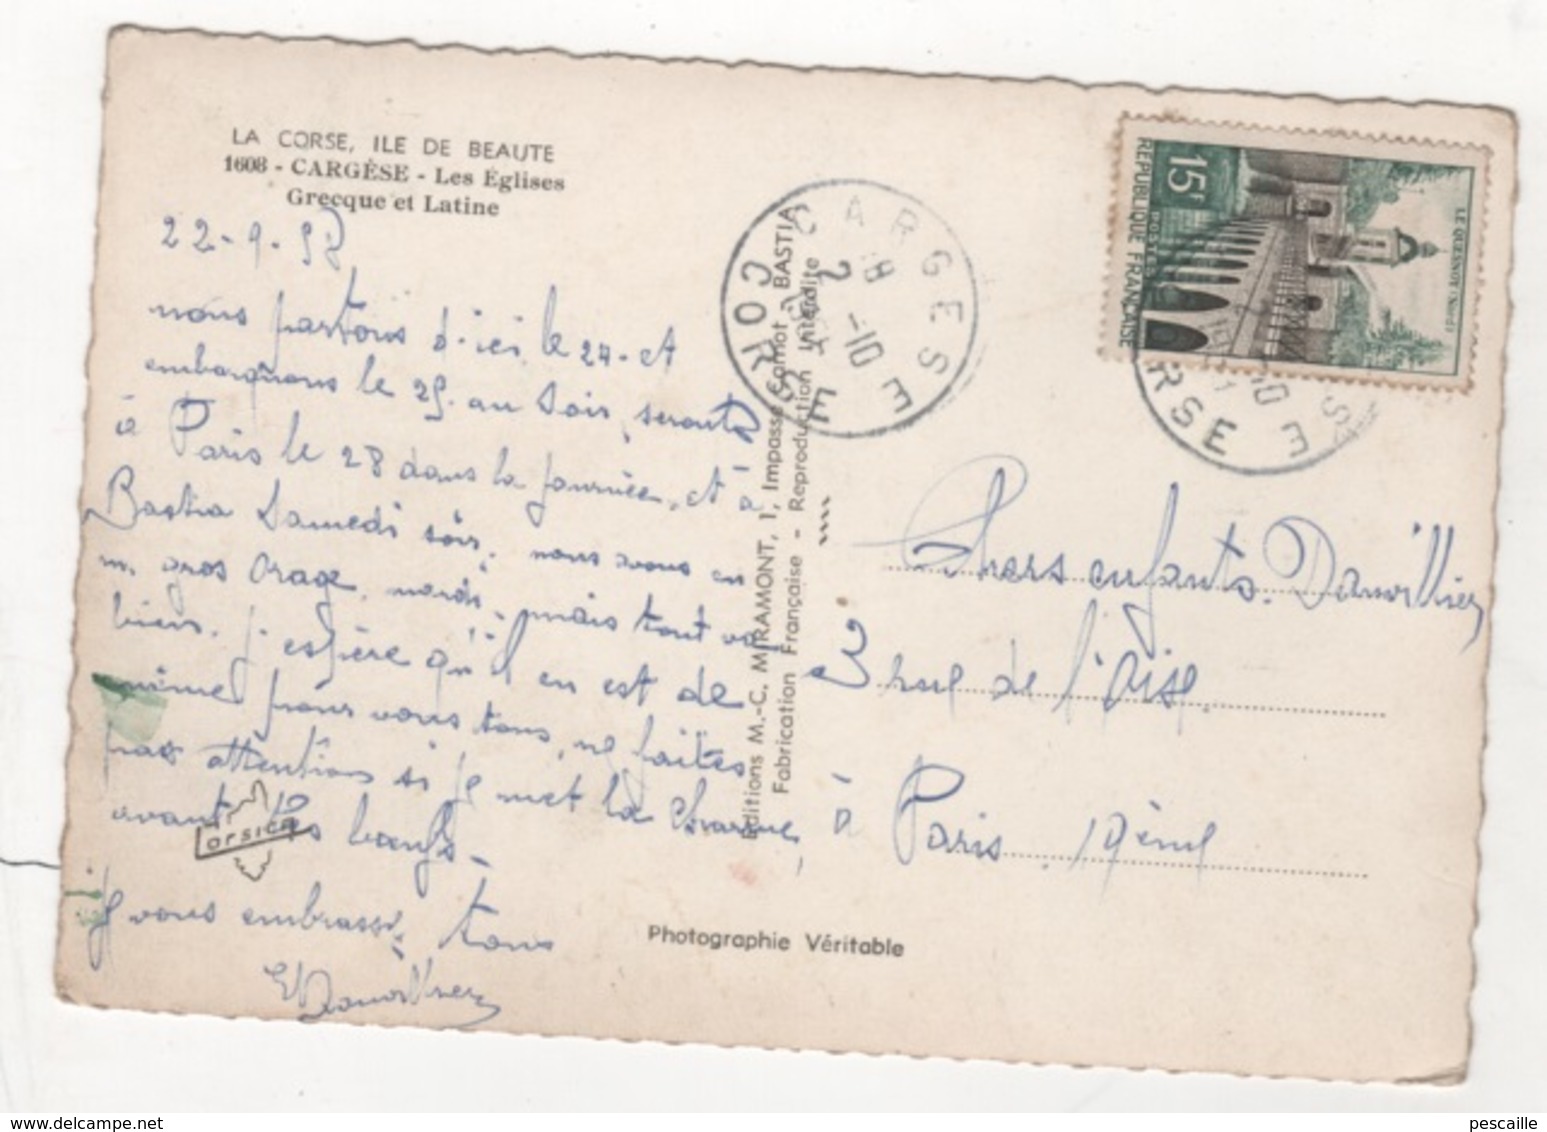 LA CORSE, ILE DE BEAUTE
1608 - CARGÈSE - Les Églises
Grecque et Latine
22-9-58
nous partons d'ici le 24 - et
embarquons le 25. au soir, seronts
à Paris le 28 dans la journée, et à
Bastia Samedi soir. nous avons eu
un gros orage, mardi, mais tout va
bien. j'espère qu'il en est de
même pour vous tous, ne faites
pas attention si je met la charrue,
avant les bœufs -
je vous embrasse, tous
Danvillier
Corsica
Editions M.-C. MIRAMONT, 1, Impasse Carnot - BASTIA
Fabrication Française - Reproduction Interdite
Photographie Véritable
CARGESE
18 H
2 -10
CORSE
15F
POSTES
REPUBLIQUE FRANÇAISE
LE QUESNOY (Nord)
-10
CORSE
Chers enfants. Danvillier
3 rue de l'Oise.
à Paris 19ème
pescaille.delcampe.net